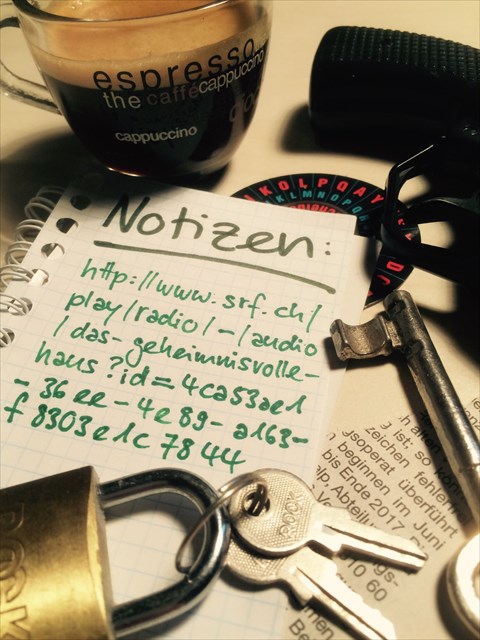 espresso
the caffé cappuccino
cappuccino
KOLPQAY
KLMNOP
Notizen:
http://www.srf.ch/
play/radio/-/audio
/das-geheimnisvolle-
haus?id=4ca53ae1
-36ee-4e89-a163-
f8303e1c7844
ROCK
ist: so
zeichen fehlerfr
gsoperat überführt
beginnen im Juni
bis Ende 2017. D
Abteilu
10 60